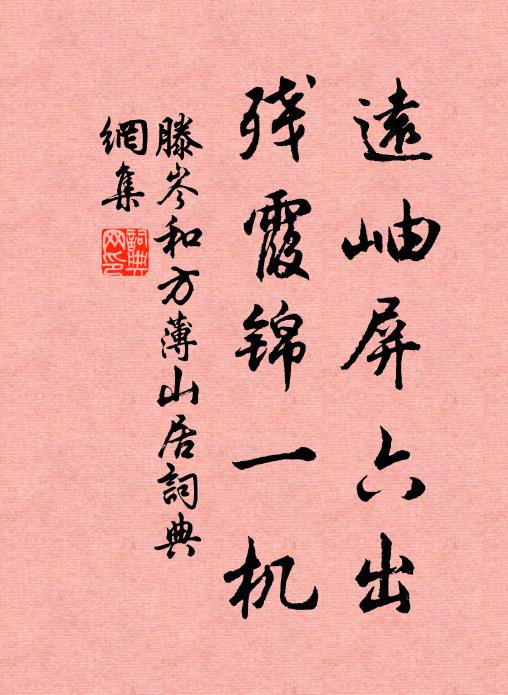 遠岫屏六出
残霞锦一机
滕岑和方薄山居詞典
網集
詞典
网印